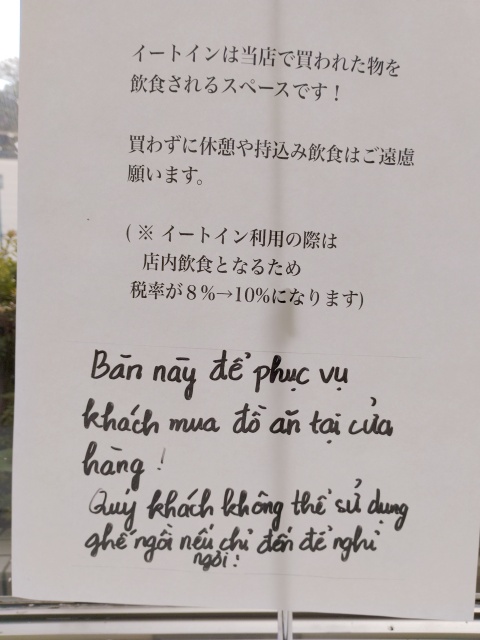 イートインは当店で買われた物を
飲食されるスペースです！
買わずに休憩や持込み飲食はご遠慮
願います。
(※ イートイン利用の際は
店内飲食となるため
税率が８％→10％になります)
Bàn này để phục vụ
khách mua đồ ăn tại cửa
hàng !
Quý khách không thể sử dụng
ghế ngồi nếu chỉ đến để nghỉ
ngơi !